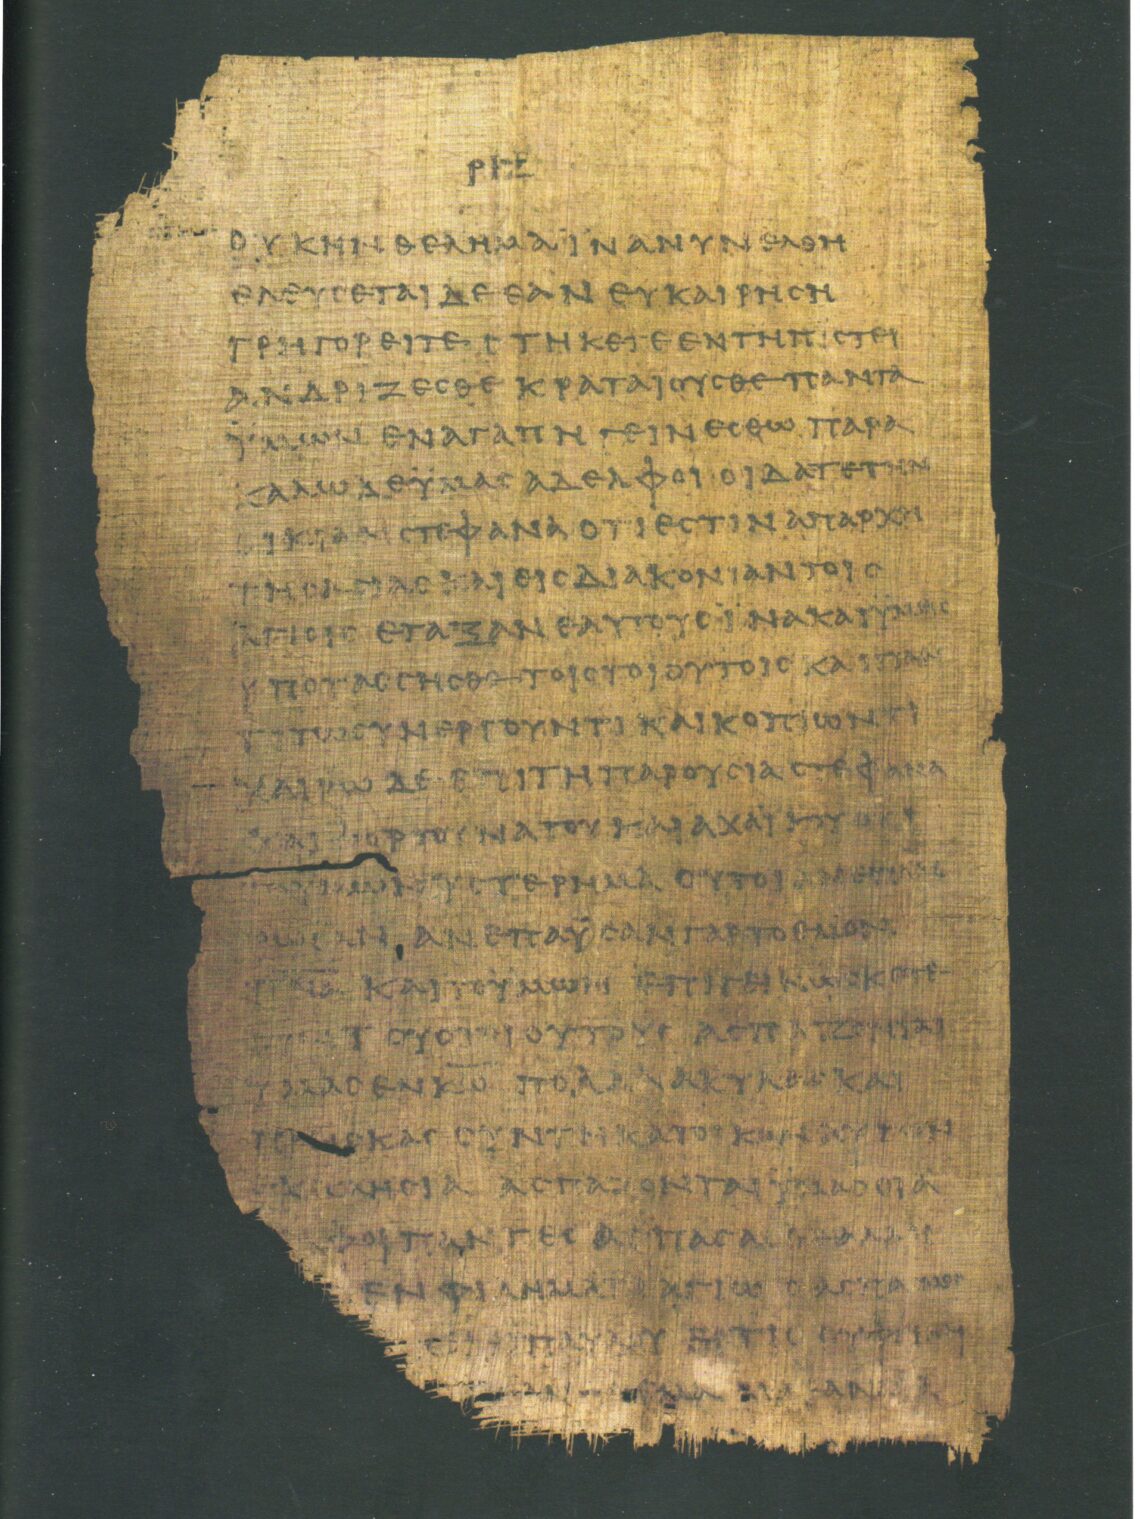 ΟΥΚ ΗΝ ΘΕΛΗΜΑ ΪΝΑ ΝΥΝ ΕΛΘΗ
ΕΛΕΥΣΕΤΑΙ ΔΕ ΕΑΝ ΕΥΚΑΙΡΗΣΗ
ΓΡΗΓΟΡΕΙΤΕ ΣΤΗΚΕΤΕ ΕΝ ΤΗ ΠΙΣΤΕΙ
ΑΝΔΡΙΖΕΣΘΕ ΚΡΑΤΑΙΟΥΣΘΕ ΠΑΝΤΑ
ΫΜΩΝ ΕΝ ΑΓΑΠΗ ΓΕΙΝΕΣΘΩ ΠΑΡΑ
ΚΑΛΩ ΔΕ ΫΜΑΣ ΑΔΕΛΦΟΙ ΟΙΔΑΤΕ ΤΗΝ
ΟΙΚΙΑΝ ΣΤΕΦΑΝΑ ΟΤΙ ΕΣΤΙΝ ΑΠΑΡΧΗ
ΤΗΣ ΑΧΑΪΑΣ ΚΑΙ ΕΙΣ ΔΙΑΚΟΝΙΑΝ ΤΟΙΣ
ΑΓΙΟΙΣ ΕΤΑΞΑΝ ΕΑΥΤΟΥΣ ΪΝΑ ΚΑΙ ΫΜΕΙΣ
ΥΠΟΤΑΣΣΗΣΘΕ ΤΟΙΣ ΤΟΙΟΥΤΟΙΣ ΚΑΙ ΠΑΝ
ΤΙ ΤΩ ΣΥΝΕΡΓΟΥΝΤΙ ΚΑΙ ΚΟΠΙΩΝΤΙ
ΧΑΙΡΩ ΔΕ ΕΠΙ ΤΗ ΠΑΡΟΥΣΙΑ ΣΤΕΦΑΝΑ
ΚΑΙ ΦΟΡΤΟΥΝΑΤΟΥ ΚΑΙ ΑΧΑΪΚΟΥ ΟΤΙ
ΤΟ ΥΜΩΝ ΫΣΤΕΡΗΜΑ ΟΥΤΟΙ ΑΝΕΠΛΗ
ΡΩΣΑΝ ΑΝΕΠΑΥΣΑΝ ΓΑΡ ΤΟ ΕΜΟΝ
ΠΝΑ ΚΑΙ ΤΟ ΫΜΩΝ ΕΠΙΓΕΙΝΩΣΚΕΤΕ
ΤΟΥΣ ΤΟΙΟΥΤΟΥΣ ΑΣΠΑΖΟΝΤΑΙ
ΥΜΑΣ ΕΝ ΚΩ ΠΟΛΛΑ ΑΚΥΛΑΣ ΚΑΙ
ΠΡΕΙΣΚΑΣ ΣΥΝ ΤΗ ΚΑΤ ΟΙΚΟΝ ΑΥΤΩΝ
ΕΚΚΛΗΣΙΑ ΑΣΠΑΖΟΝΤΑΙ ΫΜΑΣ ΟΙ Α
ΦΟΙ ΠΑΝΤΕΣ ΑΣΠΑΣΑΣΘΕ ΑΛΛΗ
ΕΝ ΦΙΛΗΜΑΤΙ ΑΓΙΩ Ο ΑΣΠΑΣΜΟΣ
ΠΑΥΛΟΥ ΕΙ ΤΙΣ ΟΥ ΦΙΛΕΙ